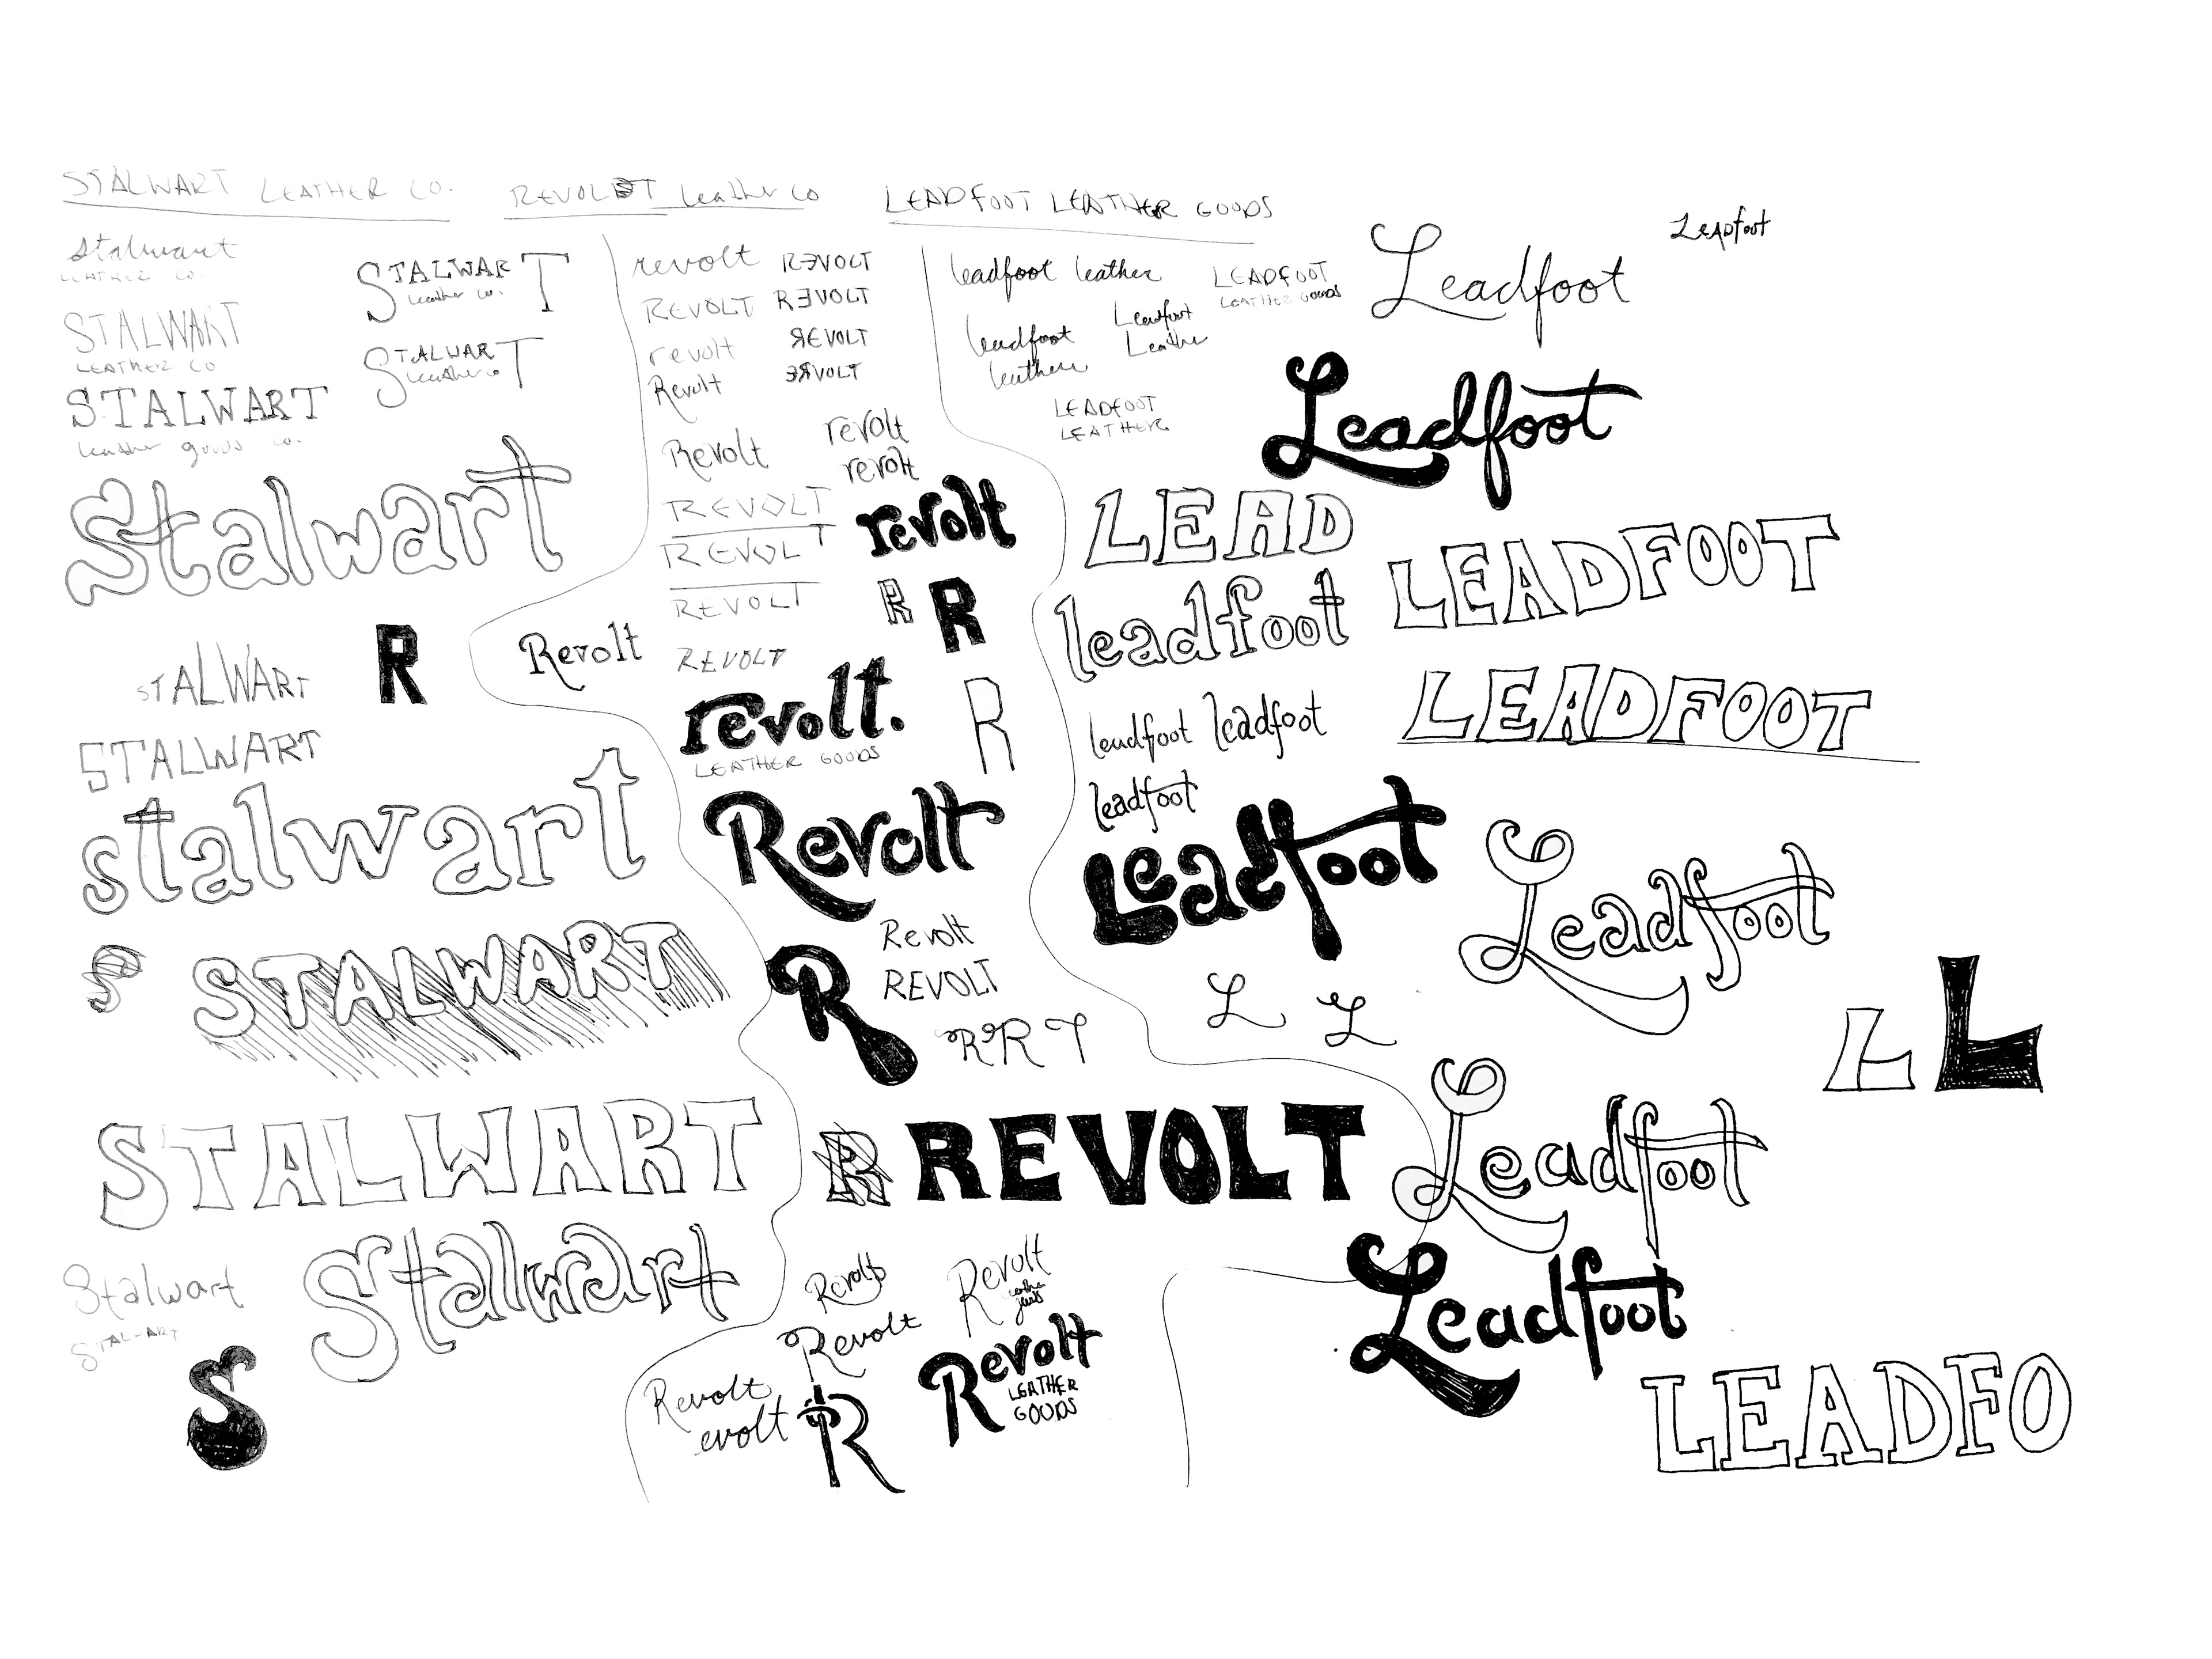 STALWART LEATHER CO.
Stalwart
LEATHER CO.
STALWART
LEATHER CO
STALWART
leather goods co.
STALWART
leather co.
STALWART
leather co
Stalwart
STALWART
R
STALWART
stalwart
S STALWART
STALWART
Stalwart
STAL-ART
Stalwart
S
REVOLT leather co
revolt
REVOLT
revolt
Revolt
Revolt
RƎVOLT
RƎVOLT
ЯEVOLT
ƎЯVOLT
revolt
revolt
REVOLT
REVOLT
REVOLT
revolt
R R
Revolt
REVOLT
revolt.
LEATHER GOODS
R
Revolt
R
Revolt
REVOLT
R R R T
R REVOLT
Revolt
Revolt
Revolt
Revolt
evolt
R
Revolt
LEATHER
GOODS
LEADFOOT LEATHER GOODS
leadfoot leather
LEADFOOT
LEATHER GOODS
leadfoot
leather
Leadfoot
Leather
LEADFOOT
LEATHER
Leadfoot
LEADfoot
Leadfoot
LEAD
LEADFOOT
leadfoot
LEADFOOT
leadfoot leadfoot
leadfoot
Leadfoot
Leadfoot
L L
L L
Leadfoot
Leadfoot
LEADFO